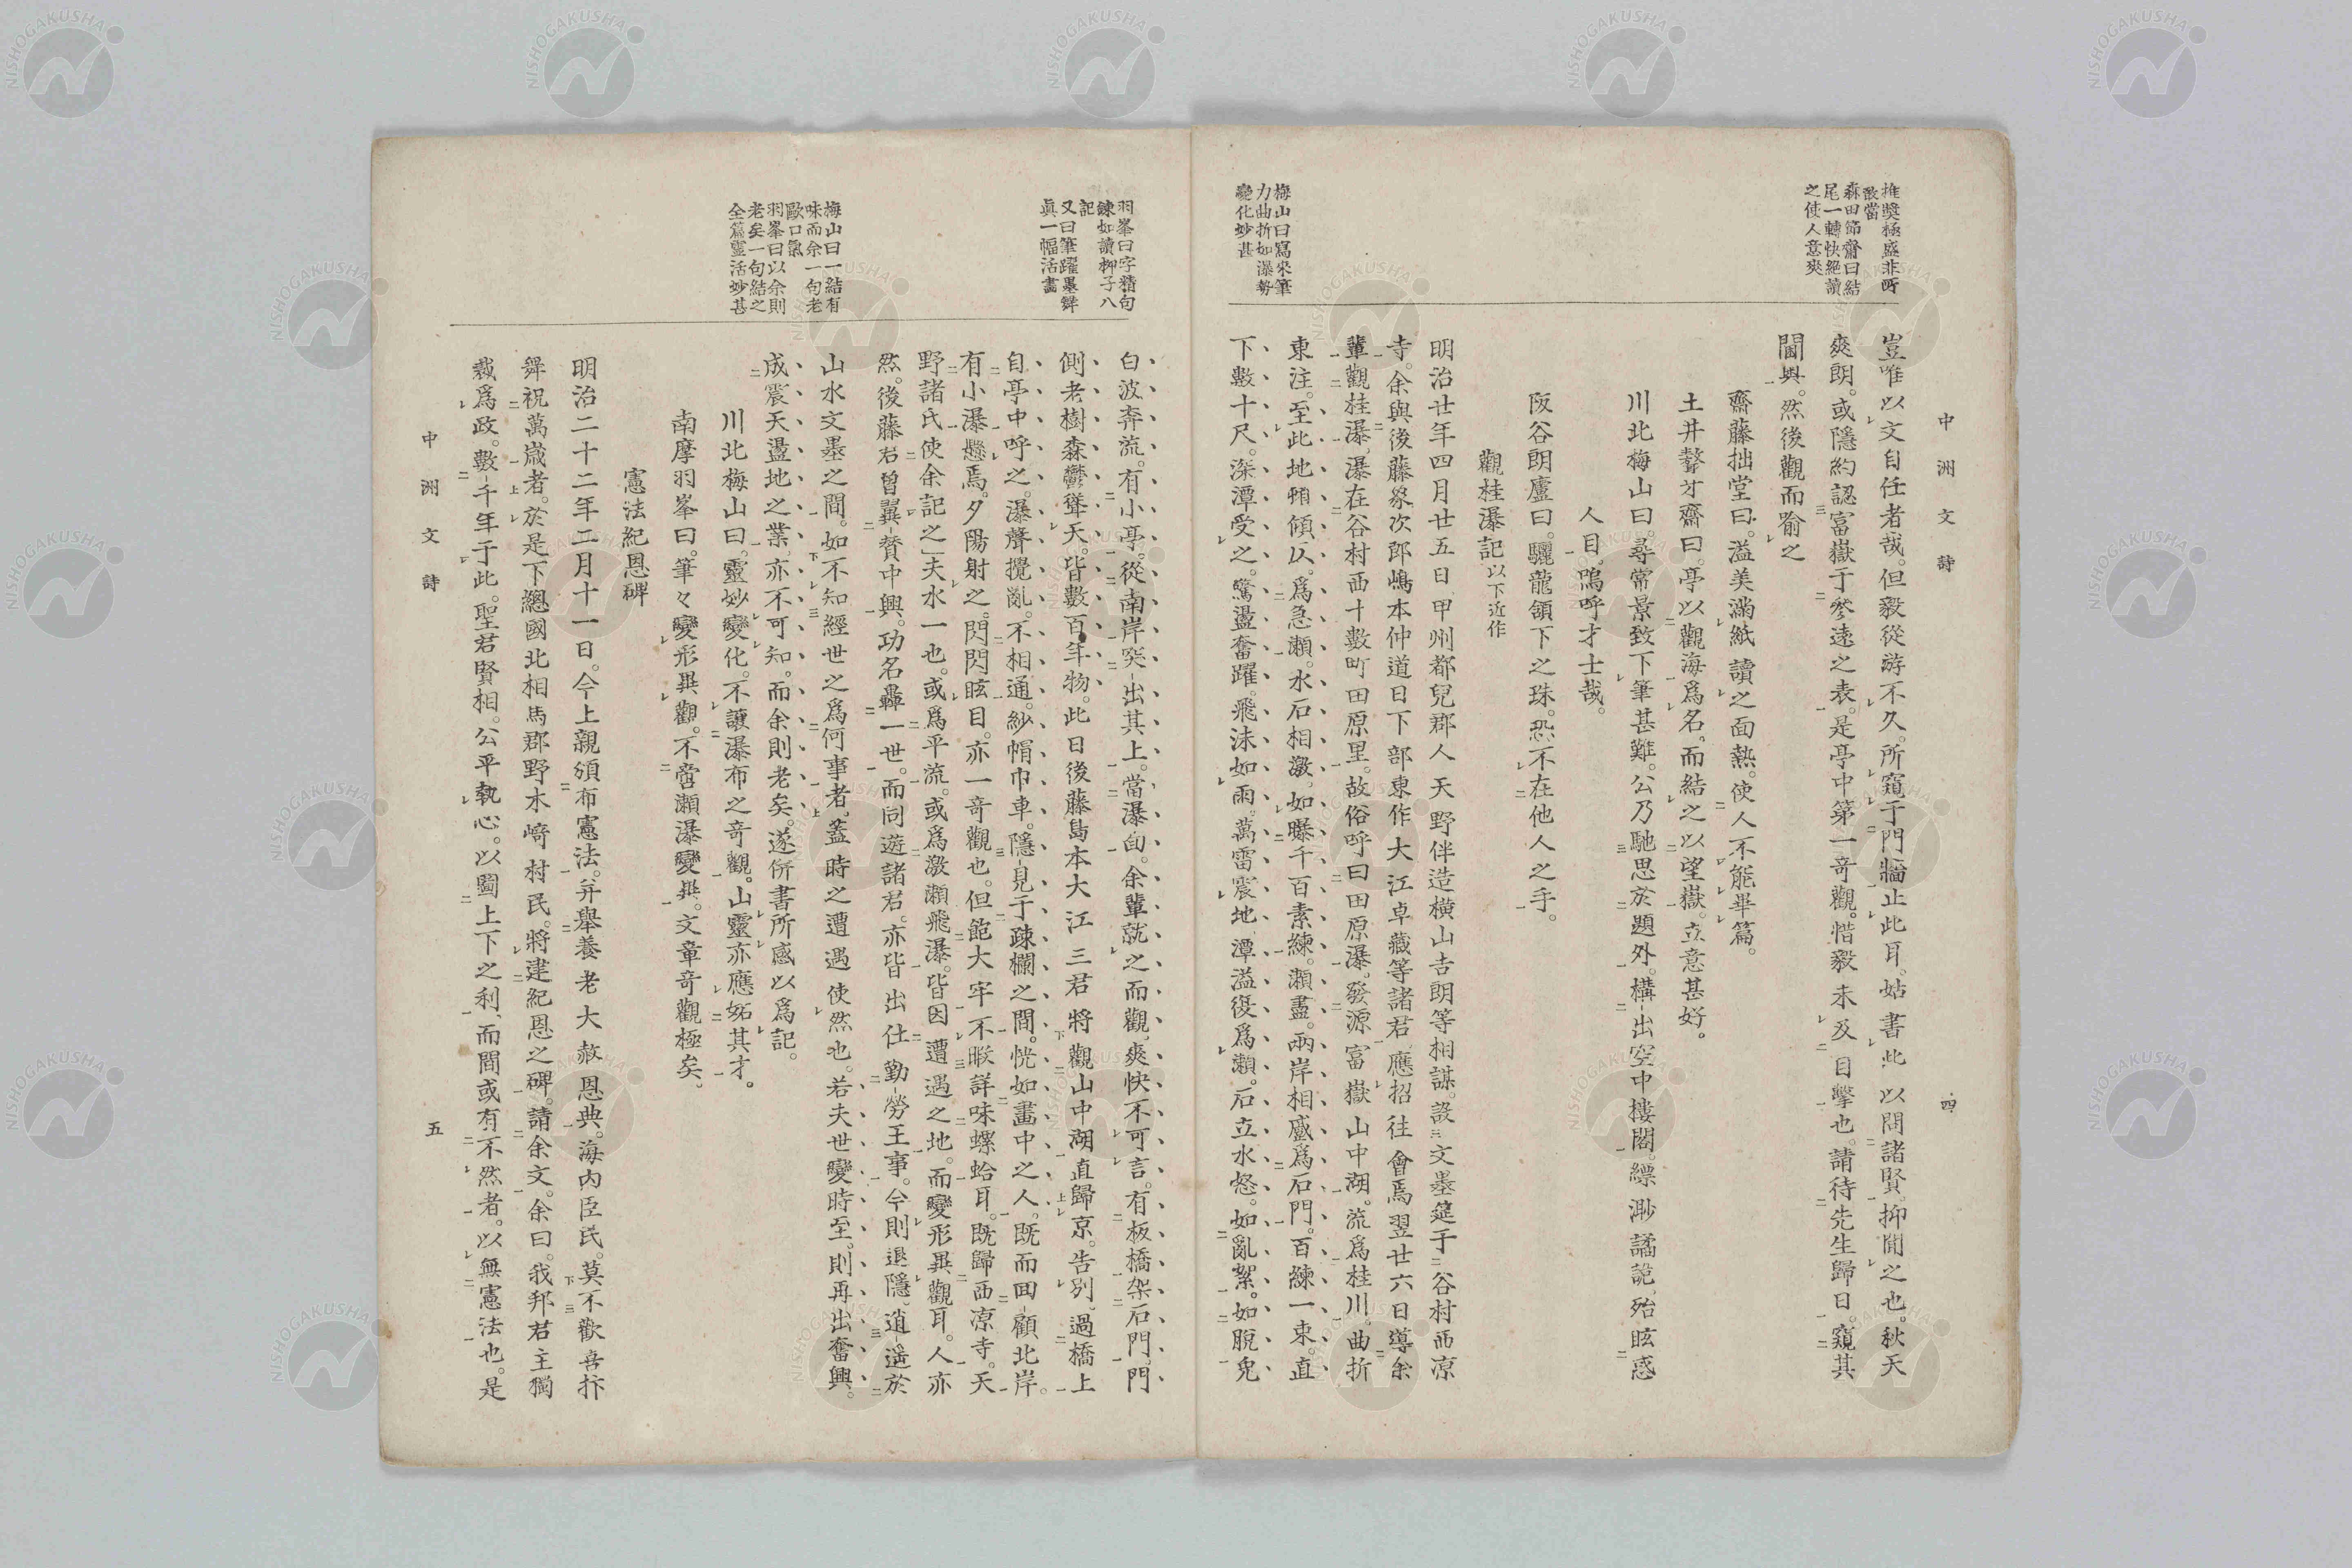 中洲文詩
四
推奬極盛非所
敢當
森田節齋曰結
尾一轉快絕讀
之使人意爽
豈唯以文自任者哉。但毅從游不久。所窺于門牆止此耳、姑書此以問諸賢。抑聞之也。秋天
爽朗。或隱約認富嶽于參遠之表。是亭中第一奇觀。惜毅未及目擊也。請待先生歸日。窺其
閫奧。然後觀而喻之
齋藤拙堂曰。溢美滿紙讀之面熱。使人不能畢篇。
土井聱牙齋曰。亭以觀海爲名。而結之以望嶽。立意甚好。
川北梅山曰。尋常景致下筆甚難。公乃馳思於題外。構出空中樓閣。縹渺譎詭。殆眩惑
人目。嗚呼才士哉。
阪谷朗廬曰。驪龍頷下之珠。恐不在他人之手。
觀桂瀑記 以下近作
明治廿年四月廿五日甲州都兒郡人天野伴造橫山吉朗等相謀。設文墨筵于谷村西凉
寺。余與後藤粂次郎嶋本仲道日下部東作大江卓藏等諸君應招往會焉翌廿六日導余
輩觀桂瀑。瀑在谷村西十數町田原里。故俗呼曰田原瀑。發源富嶽山中湖。流爲桂川。曲折
梅山曰寫來筆
力曲折如瀑勢
變化妙甚
東注。至此地稍傾仄。爲急瀨。水石相激、如曝千百素練。瀨盡。兩岸相蹙爲石門。百練一束。直
下數十尺。深潭受之。驚盪奮躍。飛沫如雨。萬雷震地潭溢復爲瀨。石立水怒。如亂絮。如脫兔
羽峯曰字精句
鍊如讀柳子八
記
又曰筆躍墨舞
眞一幅活畫
白波奔流。有小亭。從南岸突出其上。當瀑面。余輩就之而觀。爽快不可言。有板橋架石門。門
側老樹森鬱聳天。皆數百年物。此日後藤島本大江三君將觀山中湖直歸京。告別。過橋上
自亭中呼之。瀑聲攪亂。不相通。紗帽巾車。隱見于疎欄之間。恍如畫中之人。既而回顧北岸。
有小瀑懸焉。夕陽射之。閃閃眩目。亦一奇觀也。但飽大牢不暇詳味螺蛤耳。既歸西凉寺。天
野諸氏使余記之」夫水一也。或爲平流。或爲激瀨飛瀑。皆因遭遇之地。而變形異觀耳。人亦
然。後藤君曾翼贊中興。功名轟一世。而同遊諸君。亦皆出仕勤勞王事。今則退隱。逍遙於
梅山曰一結有
味而余一句老
歐口氣
羽峯曰以余則
老矣一句結之
全篇靈活妙甚
山水文墨之間。如不知經世之爲何事者。蓋時之遭遇使然也。若夫世變時至。則再出奮興。
成震天盪地之業亦不可知。而余則老矣。遂併書所感以爲記。
川北梅山曰。靈妙變化。不讓瀑布之奇觀。山靈亦應妬其才。
南摩羽峯曰。筆々變形異觀。不啻瀨瀑變異。文章奇觀極矣。
憲法紀恩碑
明治二十二年二月十一日。今上親頒布憲法。幷舉養老大赦恩典。海內臣民。莫不歡喜抃
舞祝萬歲者。於是下總國北相馬郡野木崎村民。將建紀恩之碑。請余文。余曰。我邦君主獨
裁爲政。數千年于此。聖君賢相。公平執心。以圖上下之利、而間或有不然者。以無憲法也。是
中洲文詩
五